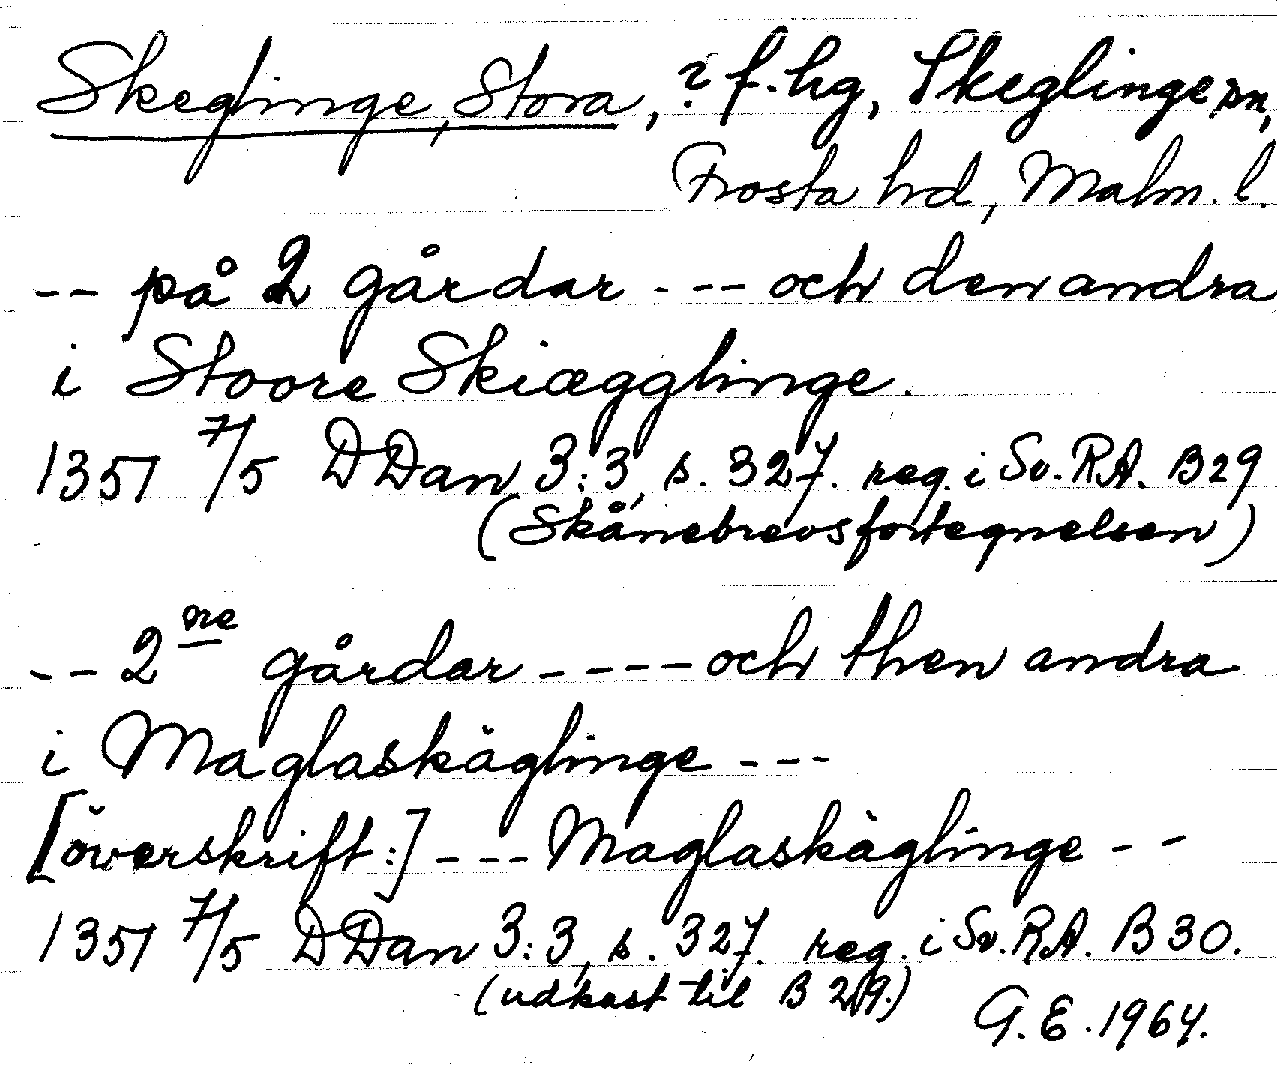 Skeglinge, Stora, ? f. hg, Skeglinge sn,
Frosta hd, Malm. l.
-- på 2 gårdar - -- och den andra
i Stoore Skiægglinge.
1351 7/5 DDan 3:3, s. 327. reg. i Sv. RA. B29
(Skånebrevsfortegnelsen)
-- 2 ne gårdar ---- och then andra
i Maglaskäglinge ---
[överskrift:] --- Maglaskäglinge --
1351 7/5 DDan 3:3, s. 327. reg. i Sv. RA. B30.
(udkast til B 29.)
G.E. 1964.